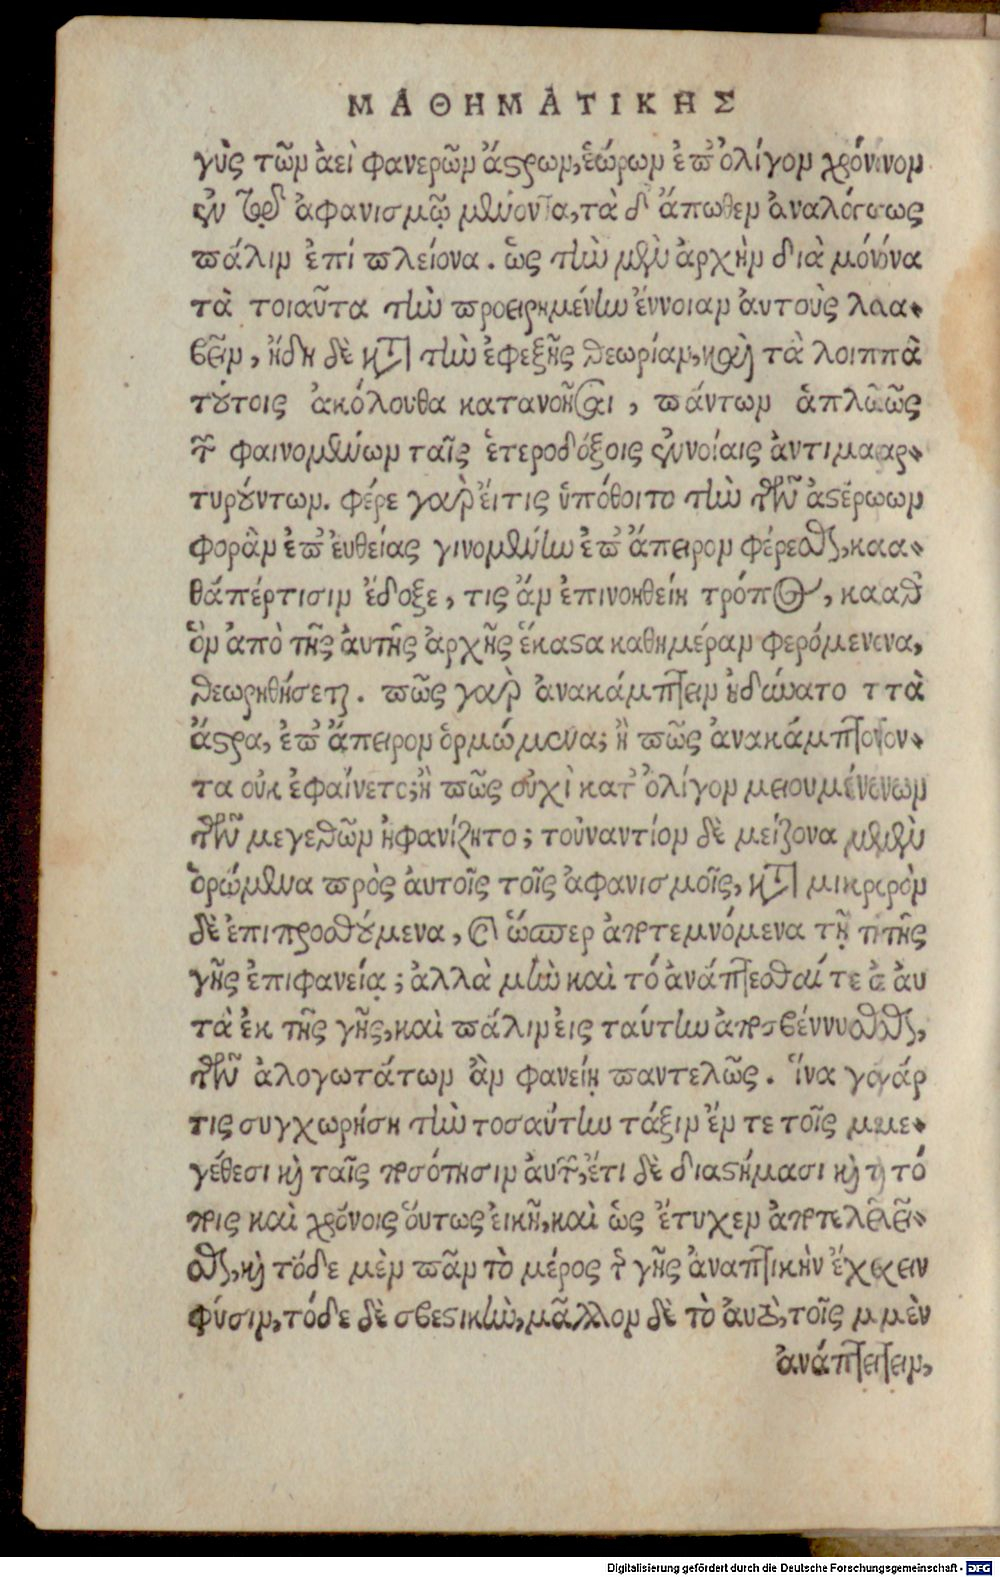 ΜΑΘΗΜΑΤΙΚΗΣ
γὺς τῶν ἀεὶ φανερῶν ἄστρων, ἑώρων ἐπ᾽ ὀλίγον χρόνον
ἐν τῷ ἀφανισμῷ μένοντα, τὰ δ᾽ ἄπωθεν ἀναλόγως
πάλιν ἐπὶ πλείονα. ὡς τὴν μὲν ἀρχὴν διὰ μόνα
τὰ τοιαῦτα τὴν προειρημένην ἔννοιαν ἀυτοὺς λα-
βεῖν, ἤδη δὲ κατὰ τὴν ἐφεξῆς θεωρίαν, καὶ τὰ λοιπὰ
τούτοις ἀκόλουθα κατανοῆσαι, πάντων ἁπλῶς
τῶν φαινομένων ταῖς ἑτεροδόξοις ἐννοίαις ἀντιμαρ-
τυρούντων. φέρε γὰρ εἴ τις ὑπόθοιτο τὴν τῶν ἀστέρων
φορὰν ἐπ᾽ ἐυθείας γινομένην ἐπ᾽ ἄπειρον φέρεσθαι, κα-
θάπέρ τισιν ἔδοξε, τις ἂν ἐπινοηθείη τρόπος, καθ᾽
ὃν ἀπὸ τῆς ἀυτῆς ἀρχῆς ἕκαστα καθημέραν φερόμενα,
θεωρηθήσεται. πῶς γὰρ ἀνακάμπτειν ἐδύνατο τὰ
ἄστρα, ἐπ᾽ ἄπειρον ὁρμώμενα; ἢ πῶς ἀνακάμπτον-
τα οὐκ ἐφαίνετο; ἢ πῶς οὐχὶ κατ᾽ ὀλίγον μειουμένων
τῶν μεγεθῶν ἠφανίζητο; τοὐναντίον δὲ μείζονα μὲν
ὁρώμενα πρὸς ἀυτοῖς τοῖς ἀφανισμοῖς, κατὰ μικρὸν
δὲ ἐπιπροσθούμενα, καὶ ὥσπερ ἀποτεμνόμενα τῇ τῆς
γῆς ἐπιφανείᾳ; ἀλλὰ μὴν καὶ τό ἀνάπτεσθαί τε ἀυ
τὰ ἐκ τῆς γῆς, καὶ πάλιν εἰς ταύτην ἀποσβέννυσθαι,
τῶν ἀλογωτάτων ἂν φανείη παντελῶς. ἵνα γάρ
τις συγχωρήση τὴν τοσαύτην τάξιν ἔν τε τοῖς με-
γέθεσι καὶ ταῖς ποσότησιν ἀυτῶν, ἔτι δὲ διαστήμασι καὶ τό
ποις καὶ χρόνοις ὅυτως ἐικῆ, καὶ ὡς ἔτυχεν ἀποτελεῖ-
σθαι, καὶ τόδε μὲν πᾶν τὸ μέρος τῆς γῆς ἀναπτικὴν ἔχειν
φύσιν, τόδε δὲ σβεστικὴν, μᾶλλον δὲ τὸ ἀυτὸ, τοῖς μὲν
ἀνάπτειν,
Digitalisierung gefördert durch die Deutsche Forschungsgemeinschaft - DFG